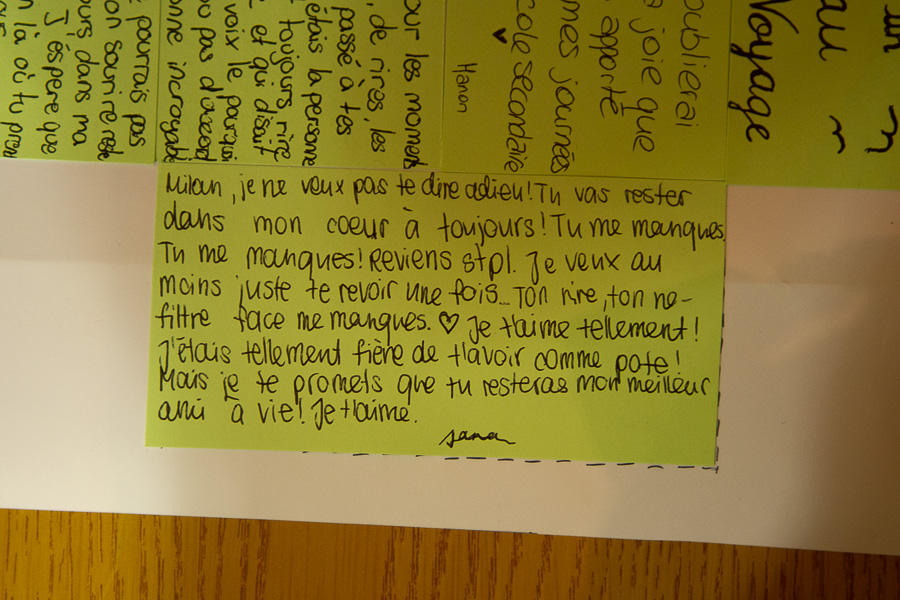 un
au
Voyage
oublierai
joie que
apporté
mes journées
cole secondaire ♥
Manon
our les moments
, de rires, les
passé à tes
étais la personne
toujours rire
et qui disait
voix le pourquoi
pas d'accord
onne incroyable
pourrais pas
on sourire
ours dans ma
J'espère que
n là où tu
Milan, je ne veux pas te dire adieu! Tu vas rester
dans mon coeur à toujours! Tu me manques.
Tu me manques! Reviens stpl. Je veux au
moins juste te revoir une fois... Ton rire, ton no-
filtre face me manques. ♡ Je t'aime tellement!
J'étais tellement fière de t'avoir comme pote!
Mais je te promets que tu resteras mon meilleur
ami à vie! Je t'aime.
Jana